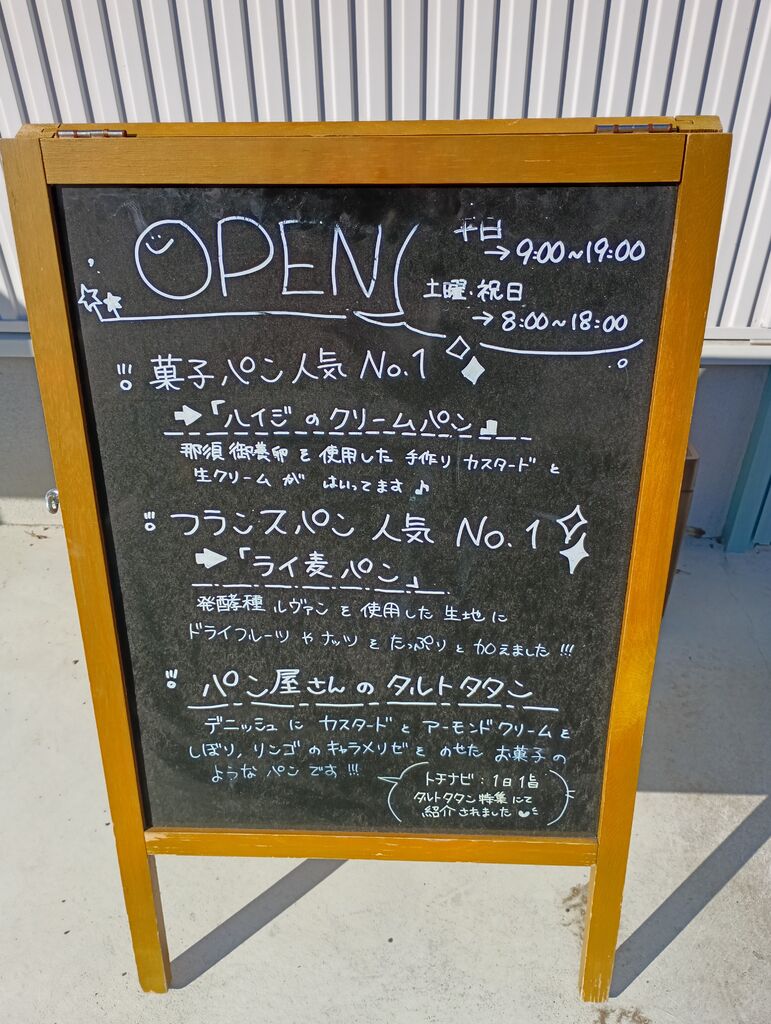 OPEN
平日
→9:00~19:00
土曜・祝日
→8:00~18:00
菓子パン人気 No.1
➡「ハイジのクリームパン」
那須御養卵を使用した手作りカスタードと
生クリームが はいってます♪
フランスパン人気 No.1
➡「ライ麦パン」
発酵種ルヴァンを使用した生地に
ドライフルーツやナッツをたっぷりと加えました!!!
パン屋さんのタルトタタン
デニッシュにカスタードとアーモンドクリームを
しぼり、リンゴのキャラメリゼをのせたお菓子の
ようなパンです!!!
トチナビ:1日1旨
タルトタタン特集にて
紹介されました♥